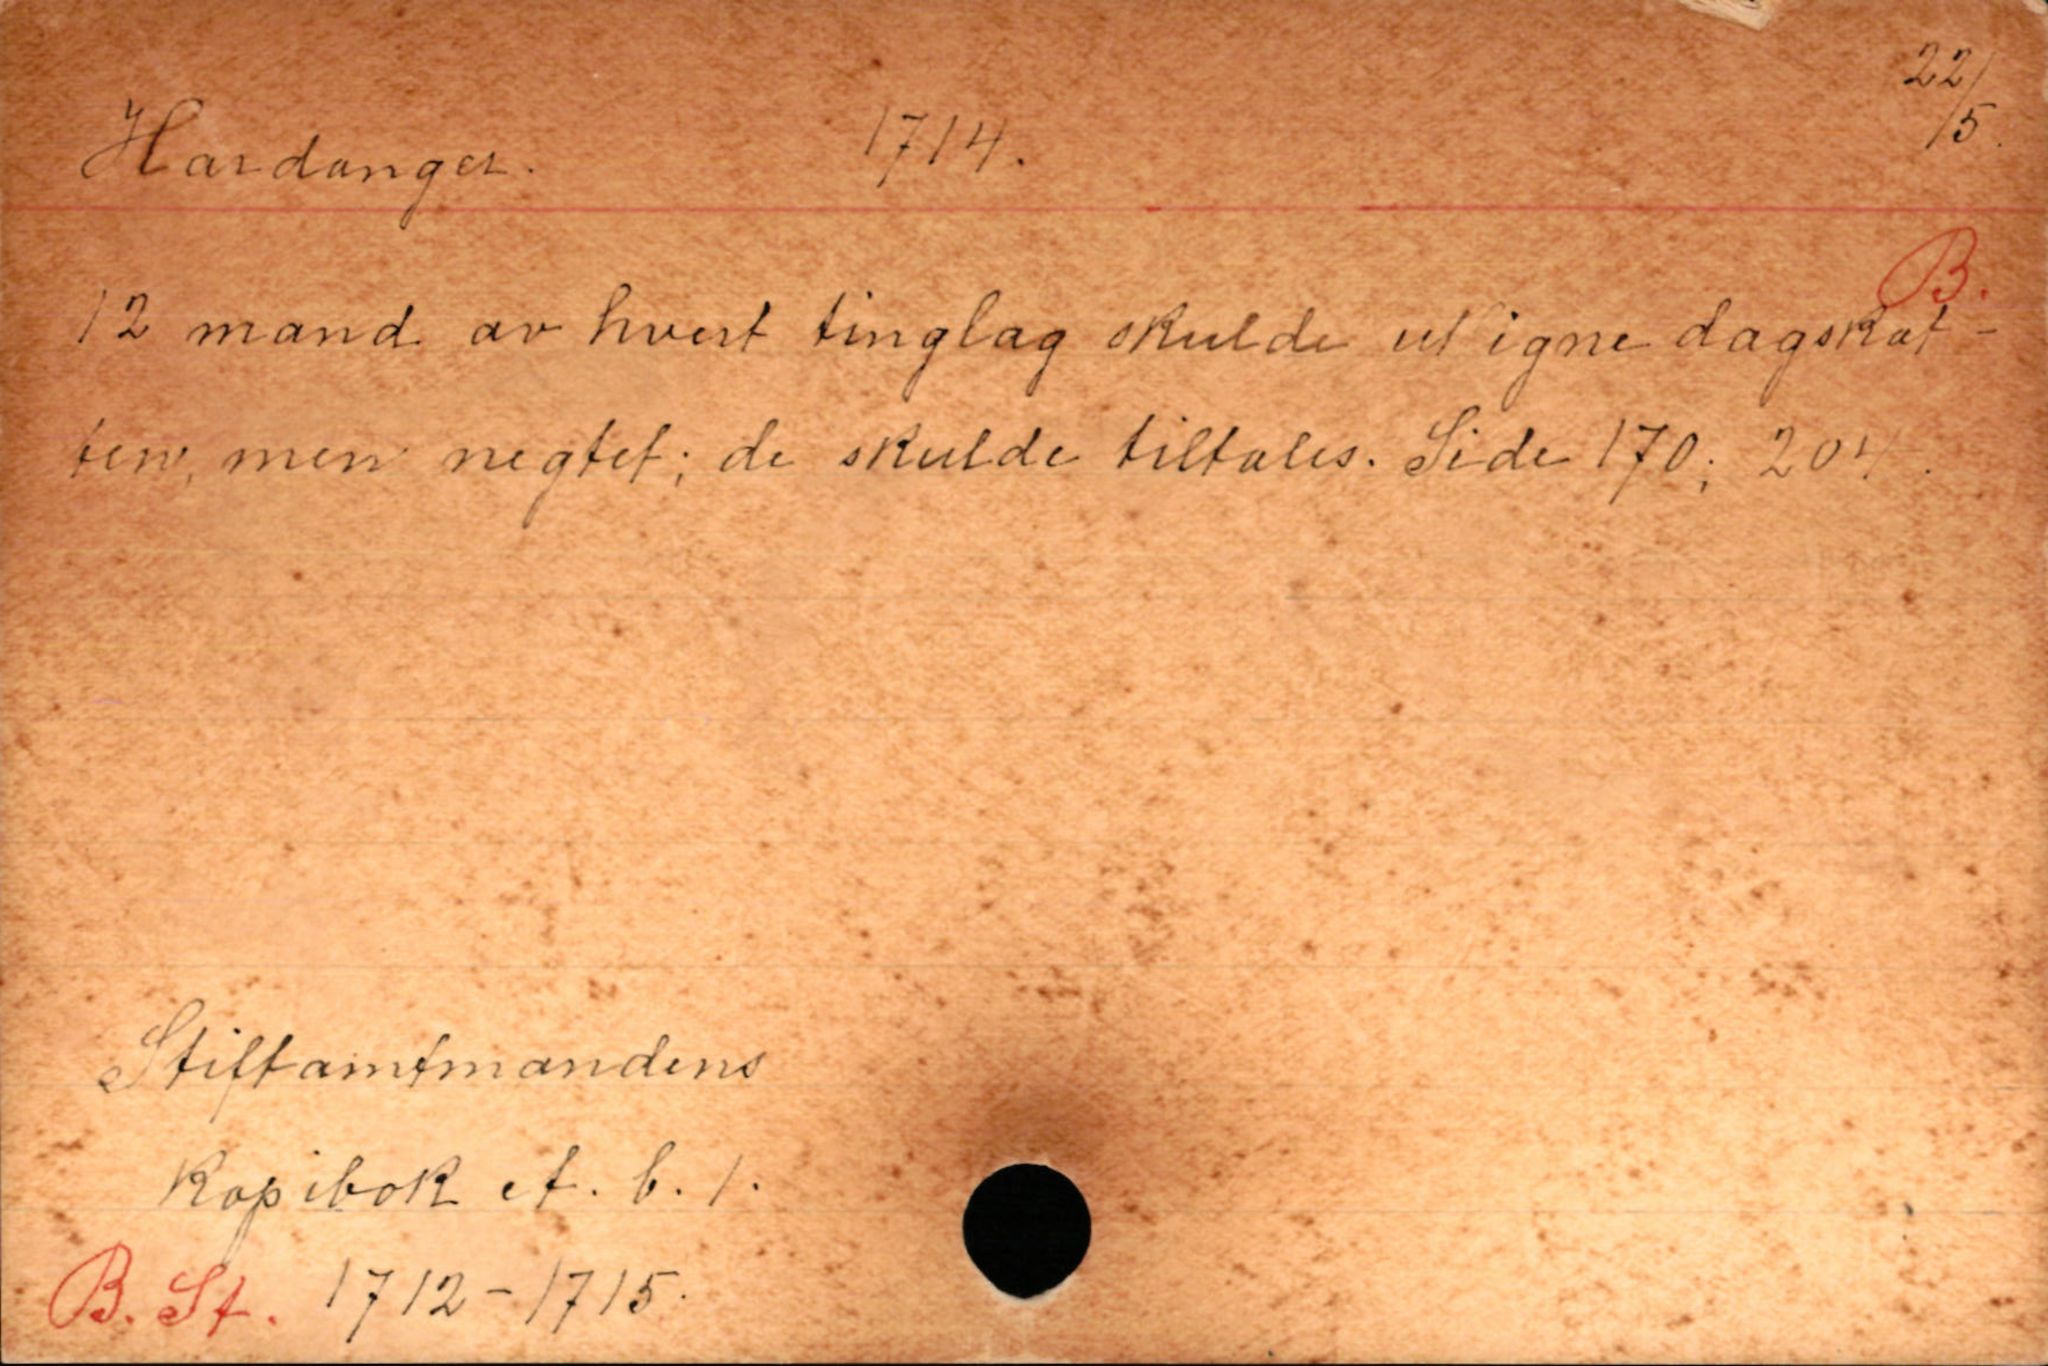 Hardanger. 1714. 22/5.
B.
12 mand av hvert tinglag skulde utligne dagskat-
ten, men negtet; de skulde tiltales. Side 170; 204.
Stiftamtmandens
Kopibok et. b. 1.
B. St. 1712-1715.